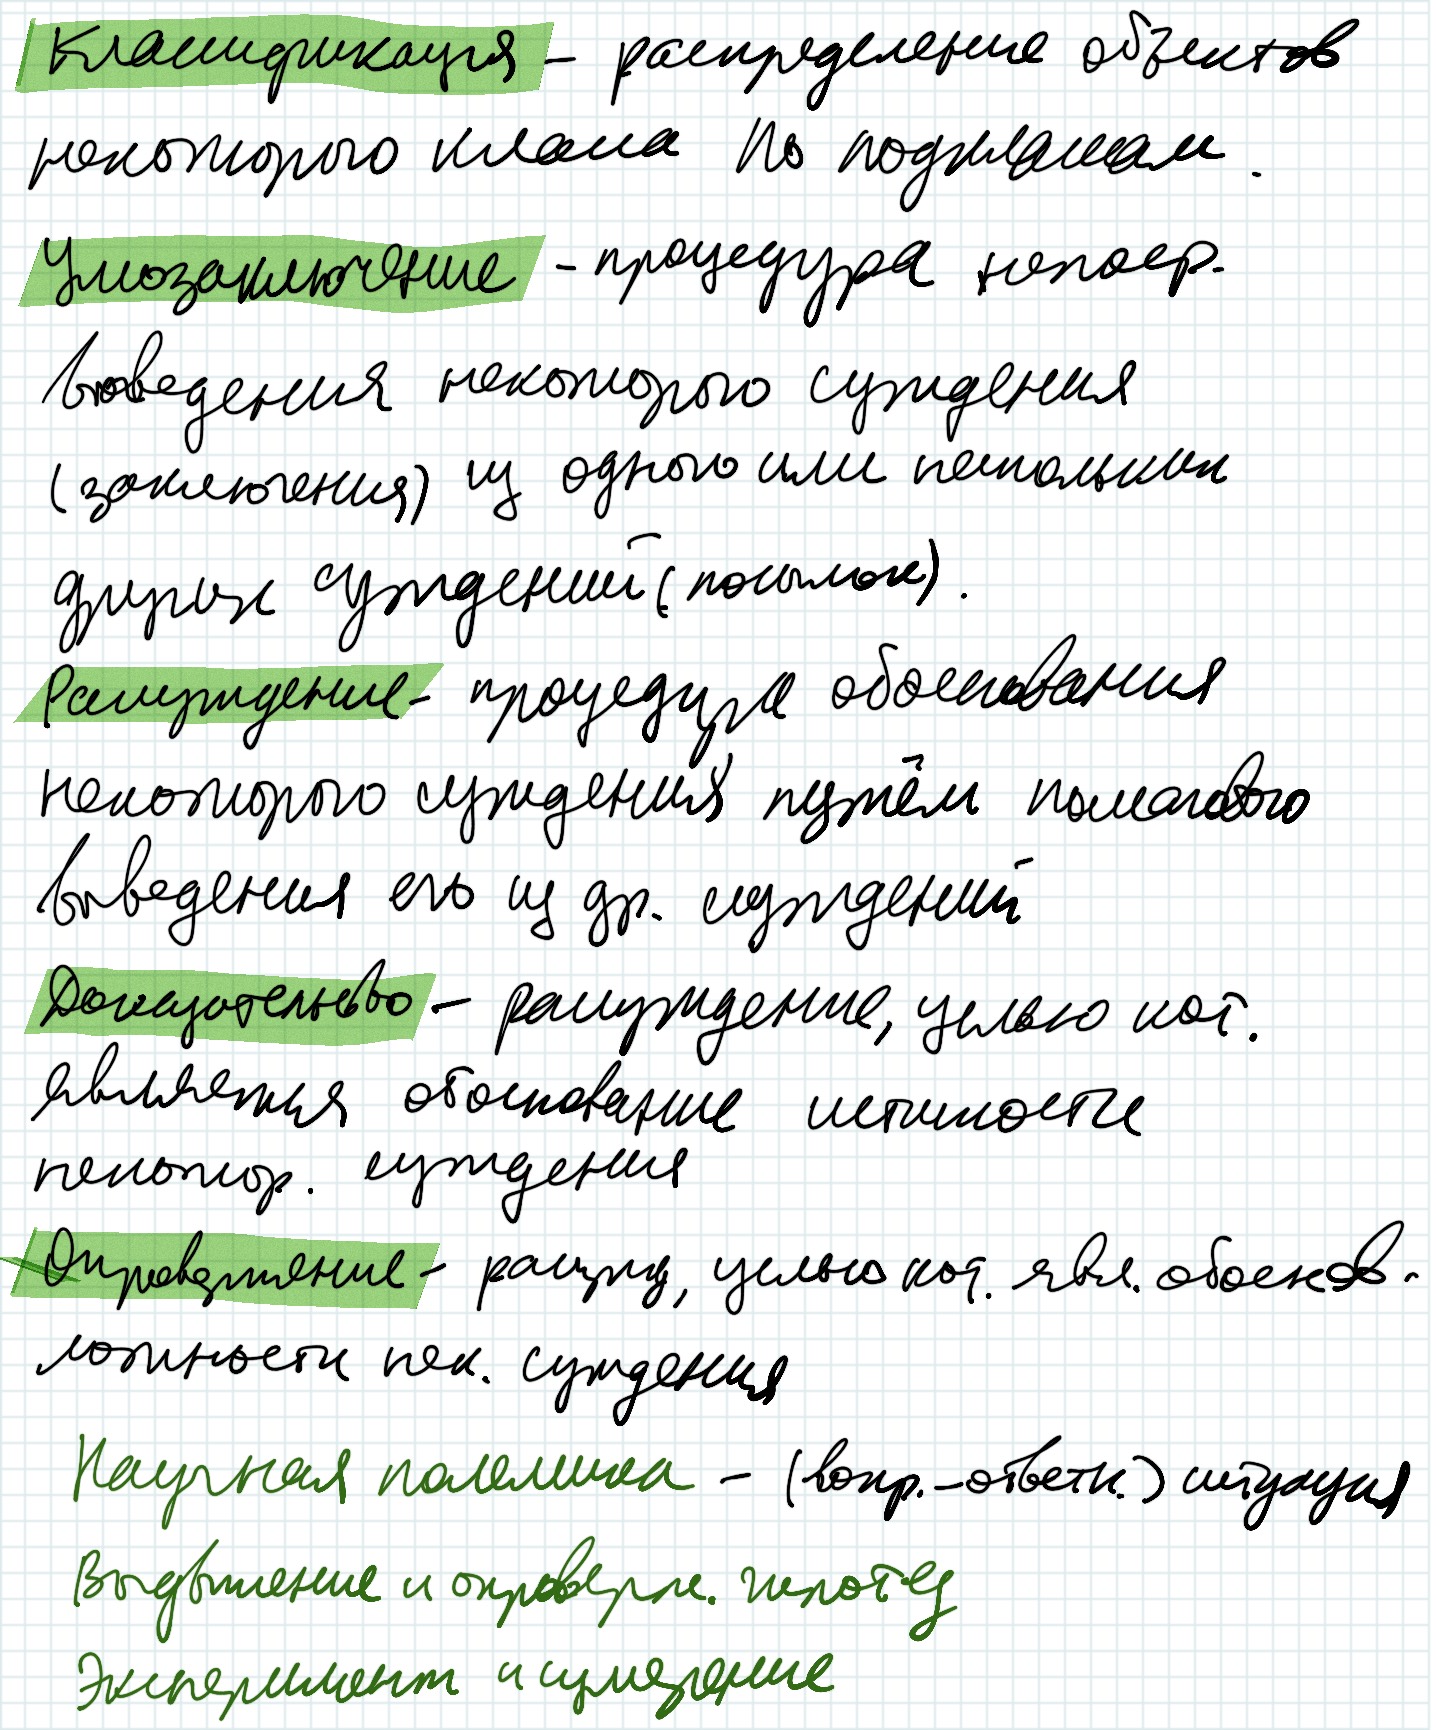 Классификация – распределение объектов
некоторого класса по подклассам.
Умозаключение – процедура непоср.
выведения некоторого суждения
(заключения) из одного или нескольких
других суждений (посылок).
Рассуждение – процедура обоснования
некоторого суждения путём пошагового
выведения его из др. суждений
Доказательство – рассуждение, целью кот.
является обоснование истинности
некотор. суждения
Опровержение – рассужд, целью кот. явл. обоснов.
ложности нек. суждения
Научная полемика – (вопр.–ответн.) ситуация
Выдвижение и опроверж. гипотез
Эксперимент и измерение